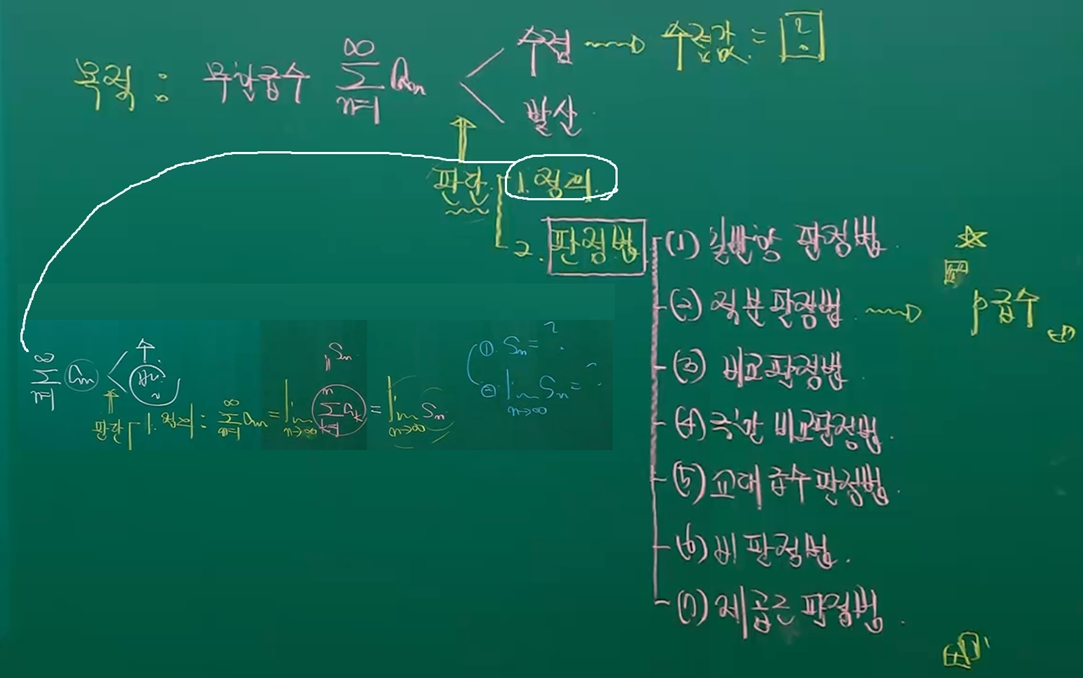 목적 : 무한급수 ∑_{n=1}^{∞} a_n < 수렴 ⟿ 수렴값 = ?
발산
판단 1. 정의
2. 판정법
(1) 일반항 판정법.
(2) 적분판정법 ⟿ p급수
(3) 비교판정법.
(4) 극한 비교판정법.
(5) 교대급수판정법.
(6) 비 판정법.
(7) 제곱근 판정법.
∑_{n=1}^{∞} a_n <
판단 1. 정의 : ∑_{n=1}^{∞} a_n = lim_{n→∞} ∑_{k=1}^{n} a_k = lim_{n→∞} S_n
S_n
① S_n = ?
② lim_{n→∞} S_n = ?